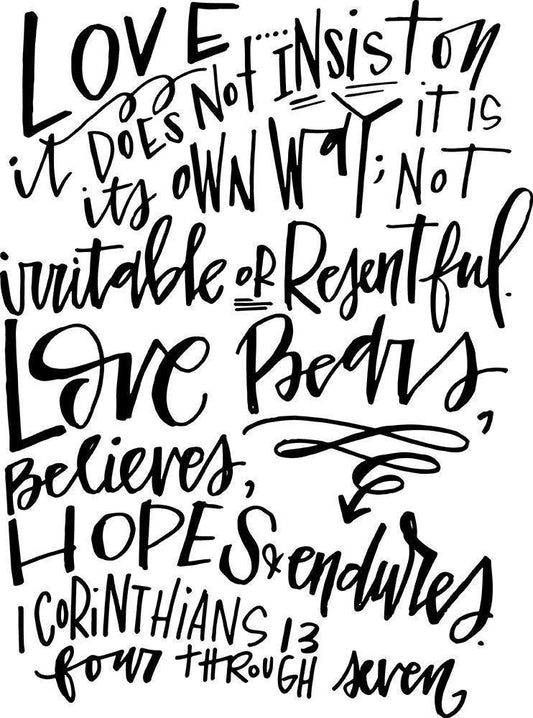 LOVE.....
it DOES Not INSISt On
its OWN Way; it is NOT
irritable OR Resentful.
Love Bears,
Believes,
HOPES & endures.
1 CORiNTHiANS 13
four THROUGH seven